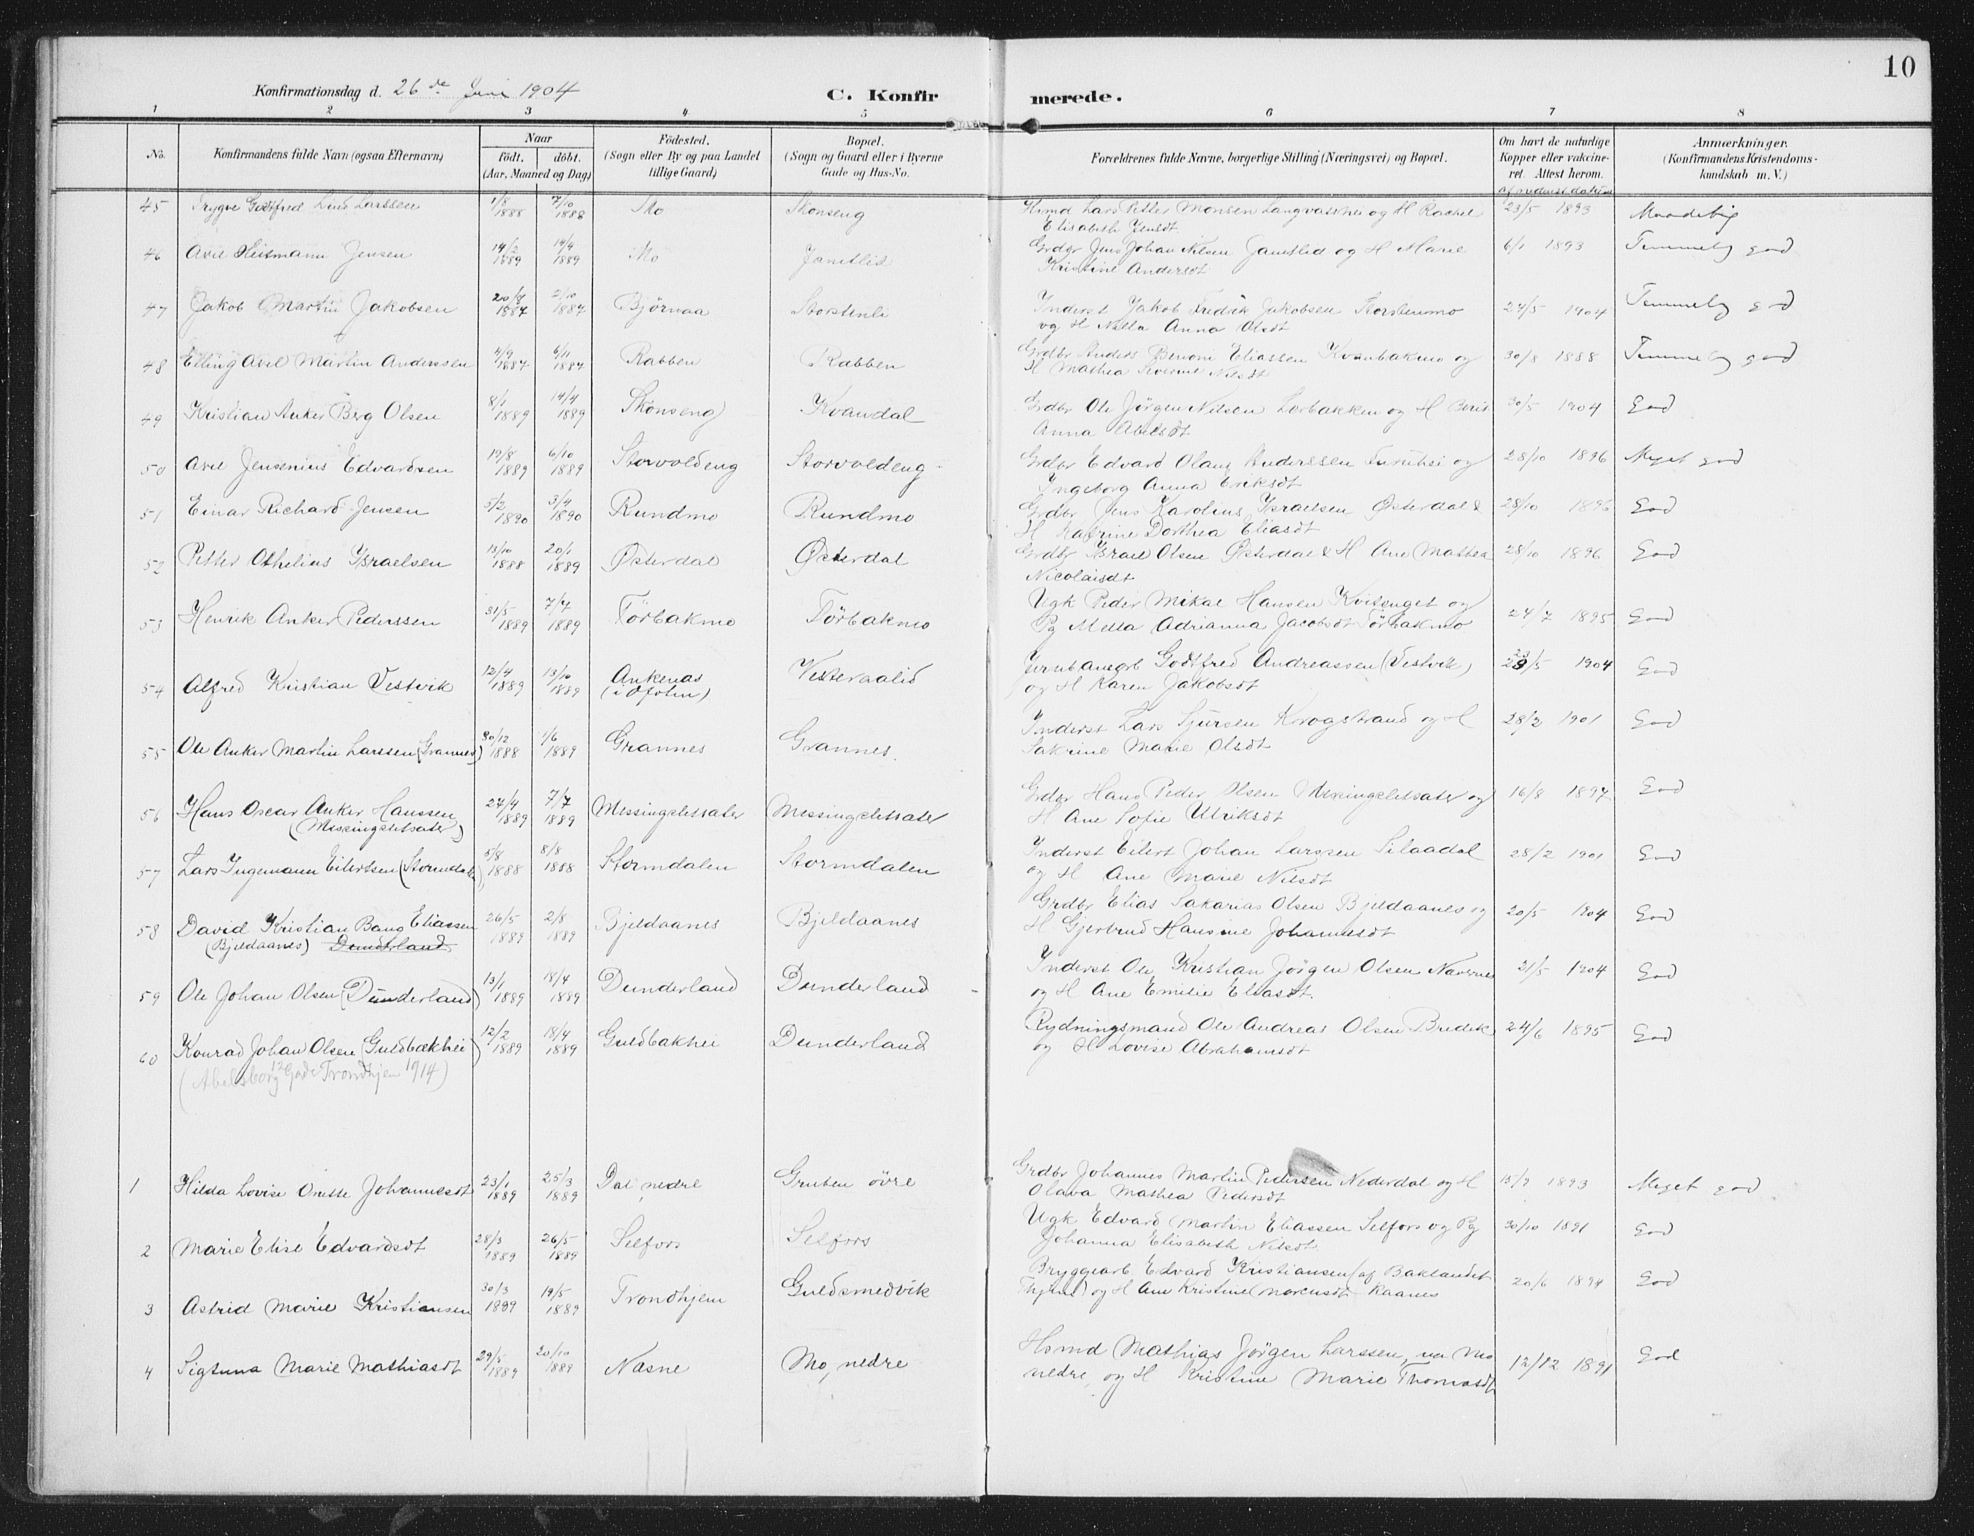 10
Konfirmationsdag d. 26de Juni 1904
C. Konfirmerede.
1 2 3 4 5 6 7 8
No.
Konfirmandens fulde Navn (ogsaa Efternavn)
Naar
født. døbt.
(Aar, Maaned og Dag)
Fødested.
(Sogn eller By og paa Landet
tillige Gaard)
Bopæl.
(Sogn og Gaard eller i Byerne
Gade og Hus-No.
Forældrenes fulde Navne, borgerlige Stilling (Næringsvei) og Bopæl.
Om havt de naturlige
Kopper eller vaccine-
ret. Attest herom.
Anmærkninger.
(Konfirmandens Kristendoms-
kundskab m. V.)
45 Trygve Godtfred Lind Larssen 1/8 1888 7/10 1888 Mo Skonseng Lars Petter Monsen og H Rachel 23/5 1893 Maadelig
Elisabeth
46 Axel Heitmann Jensen 14/2 1889 14/4 1889 Mo Jamtlid Grdbr Jens Johan Nilsen Jamtlid og H Marie 6/1 1893 Temmelig god
Kristine Andersdt
47 Jakob Martin Jakobsen 20/8 1887 2/10 1887 Bjørnaa Storstenli Inderst Jakob Fredrik Jakobsen Storstenmo 24/5 1904 Temmelig god
og H Nella Anna Olsdt
48 Elling Axel Martin Anderssen 4/9 1887 6/11 1887 Rabben Rabben Grdbr Anders Benoni Eliassen Kvanbakmo og 30/8 1888 Temmelig god
H Mathea Nilsdt
49 Kristian Anker Berg Olsen 8/1 1889 14/4 1889 Skonseng Kvandal Grdbr Ole Jørgen Nilsen Lorbakken og H Berit 30/5 1904 God
Anna Abelsdt
50 Axel Jensenius Edvardsen 19/8 1889 6/10 1889 Storvoldeng Storvoldeng Grdbr Edvard Olaus Anderssen Furuhei og 28/10 1896 Meget god
Ingeborg Anna Eriksdt
51 Einar Richard Jensen 5/2 1890 3/4 1890 Rundmo Rundmo Grdbr Jens Karolius Israelsen Østerdal & 28/10 1896 God
H Katrine Dorthea Eliasdt
52 Petter Othelius Israelsen 13/10 1888 20/1 1889 Østerdal Østerdal Grdbr Israel Olsen Østerdal & H Ane Mathea 28/10 1896 God
Nicolaisdt
53 Henrik Anker Pederssen 31/5 1889 7/7 1889 Tørbakmo Tørbakmo Ugk Peder Mikal Hansen Kvitenget og 24/7 1895 God
Pg Metta Adrianna Jacobsdt Tørbakmo
54 Alfred Kristian Vestvik 12/4 1889 13/10 1889 Ankenæs Vesteraalid Jernbanearb Godtfred Andreassen (Vestvik) 23/5 1904 God
(i Ofoten) og H Karen Jakobsdt
55 Ole Anker Martin Larssen (Grannes) 30/12 1888 1/6 1889 Grannes Grannes. Inderst Lars Sjursen Krogstrand og H 28/2 1901 God
Sakrine Marie Olsdt
56 Hans Oscar Anker Hanssen 27/4 1889 7/7 1889 Messingsletsater Messingsletsater Grdbr Hans Peder Olsen Messingsletsater og 16/8 1897 God
(Messingsletsater) H Ane Sofie Ulriksdt
57 Lars Ingemann Eilertsen (Stormdal) 5/8 1888 8/8 1888 Stormdalen Stormdalen Inderst Eilert Johan Larssen Silaadal 28/2 1901 God
og H Ane Marie Nilsdt
58 David Kristian Bang Eliassen 26/5 1889 2/8 1889 Bjeldaanes Bjeldaanes Grdbr Elias Sakarias Olsen Bjeldaanes og 20/5 1904 God
(Bjeldaanes) Dunderland H Gjertrud Hansine Johannesdt
59 Ole Johan Olsen (Dunderland) 13/1 1889 18/4 1889 Dunderland Dunderland Inderst Ole Kristian Jørgen Olsen Naverne 21/5 1904 God
og H Ane Emilie Eliasdt.
60 Konrad Johan Olsen (Guldbakhei) 12/2 1889 18/4 1889 Guldbakhei Dunderland Rydningsmand Ole Andreas Olsen Bredek 24/6 1895 God
(Abelsborg 12 Gade Trondhjen 1914) og H Lovise Abrahamsdt
1 Hilda Lovise Orette Johannesdt 23/1 1889 25/3 1889 Dal nedre Gruben øvre Grdbr Johannes Martin Pedersen Nederdal og H 15/9 1893 Meget god
Olava Mathea Pedersdt
2 Marie Elise Edvardsdt 28/3 1889 26/5 1889 Selfors Selfors Ugk Edvard Martin Eliassen Selfors og Pg 30/10 1891 God
Johanna Elisabeth Nilsdt
3 Astrid Marie Kristiansen 30/3 1889 19/5 1889 Trondhjem Guldsmedvik Bryggearb Edvard Kristiansen (af Baklandet 20/6 1894 God
Thjem) og H Ane Kristine Raanes
4 Sigtuna Marie Mathiasdt 29/5 1889 20/10 1889 Nasne Mo, nedre Hsmd Mathias Jørgen Larssen, u. Mo 12/12 1891 God
nedre, og H Kristine Marie Thomasdt